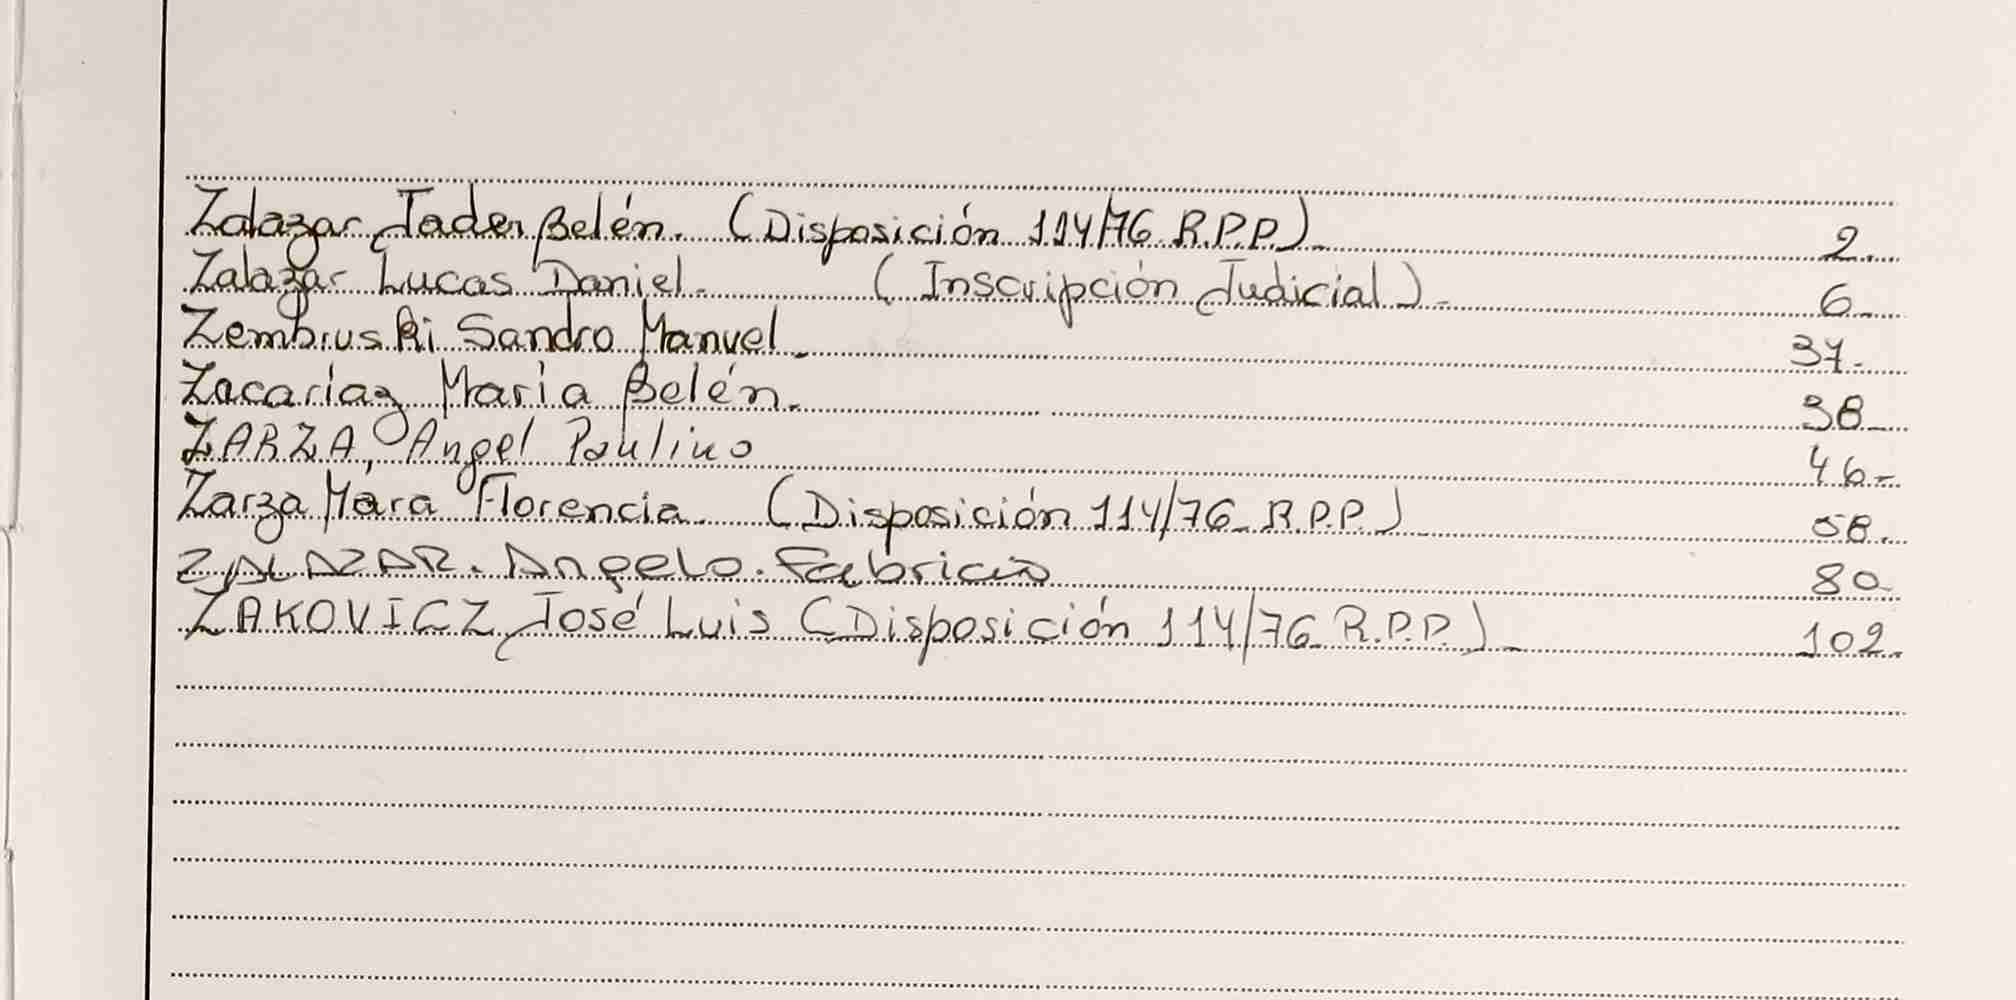 Zalazar Jader Belén. (Disposición 114/76 R.P.P.) 2.
Zalazar Lucas Daniel. (Inscripción Judicial). 6.
Zembruski Sandro Manuel. 37.
Zacariaz Maria Belén. 38
ZARZA, Angel Paulino 46-
Zarza Mara Florencia. (Disposición 114/76 R.P.P.) 58.
ZALAZAR. Angelo. Fabricio 80
ZAKOVICZ José Luis (Disposición 114/76 R.P.P.) 102.